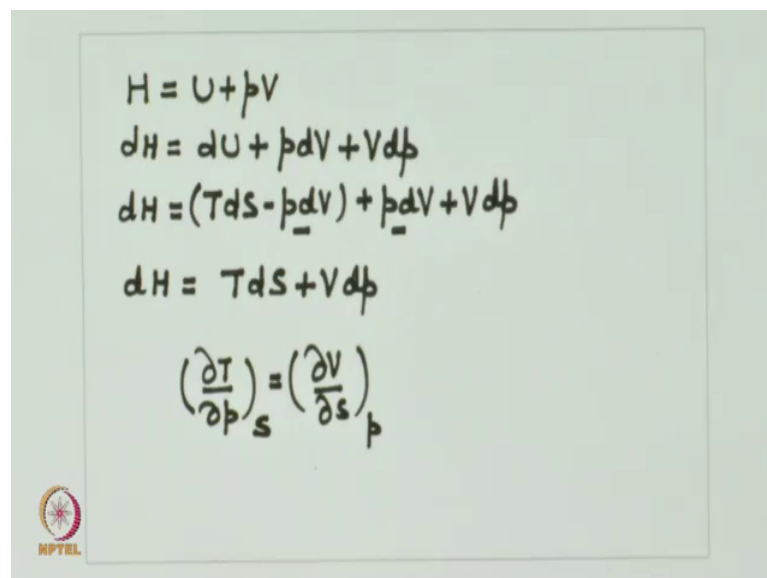 H = U + pV
dH = dU + pdV + Vdp
dH = (TdS - pdV) + pdV + Vdp
dH = TdS + Vdp
(∂T/∂p)_S = (∂V/∂S)_p
NPTEL